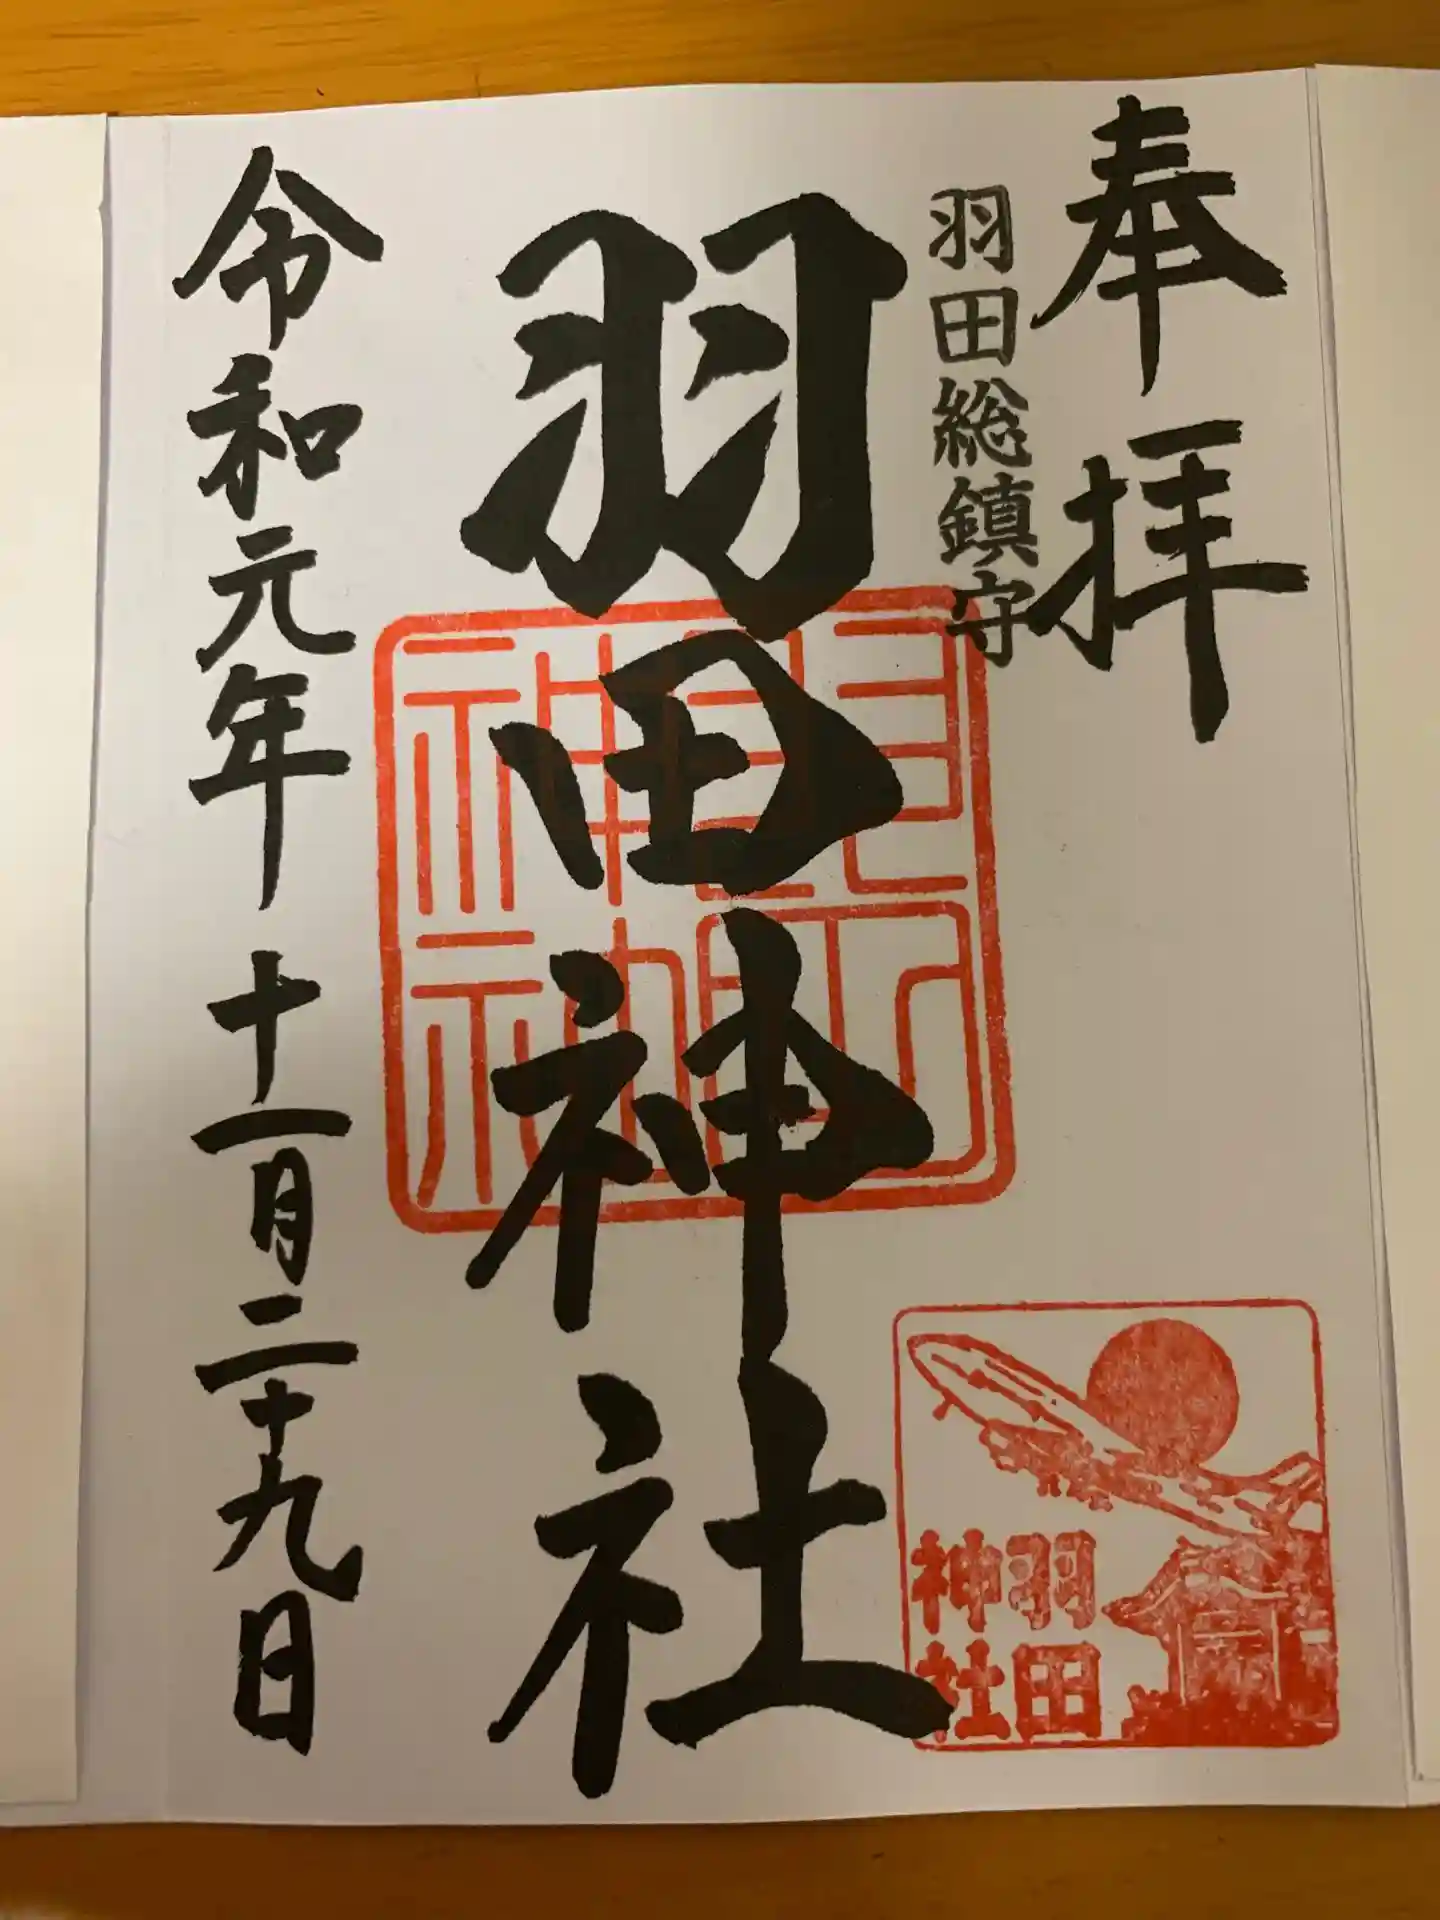 奉拝
羽田総鎮守
羽田神社
令和元年十一月二十九日
羽田
神社
羽田
神社